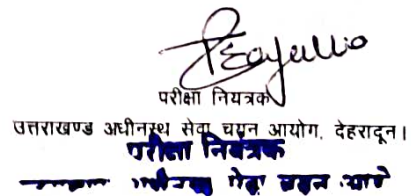 परीक्षा नियत्रक
उत्तराखण्ड अधीनस्थ सेवा चयन आयोग, देहरादून।
परीक्षा नियंत्रक
सेवा चयन